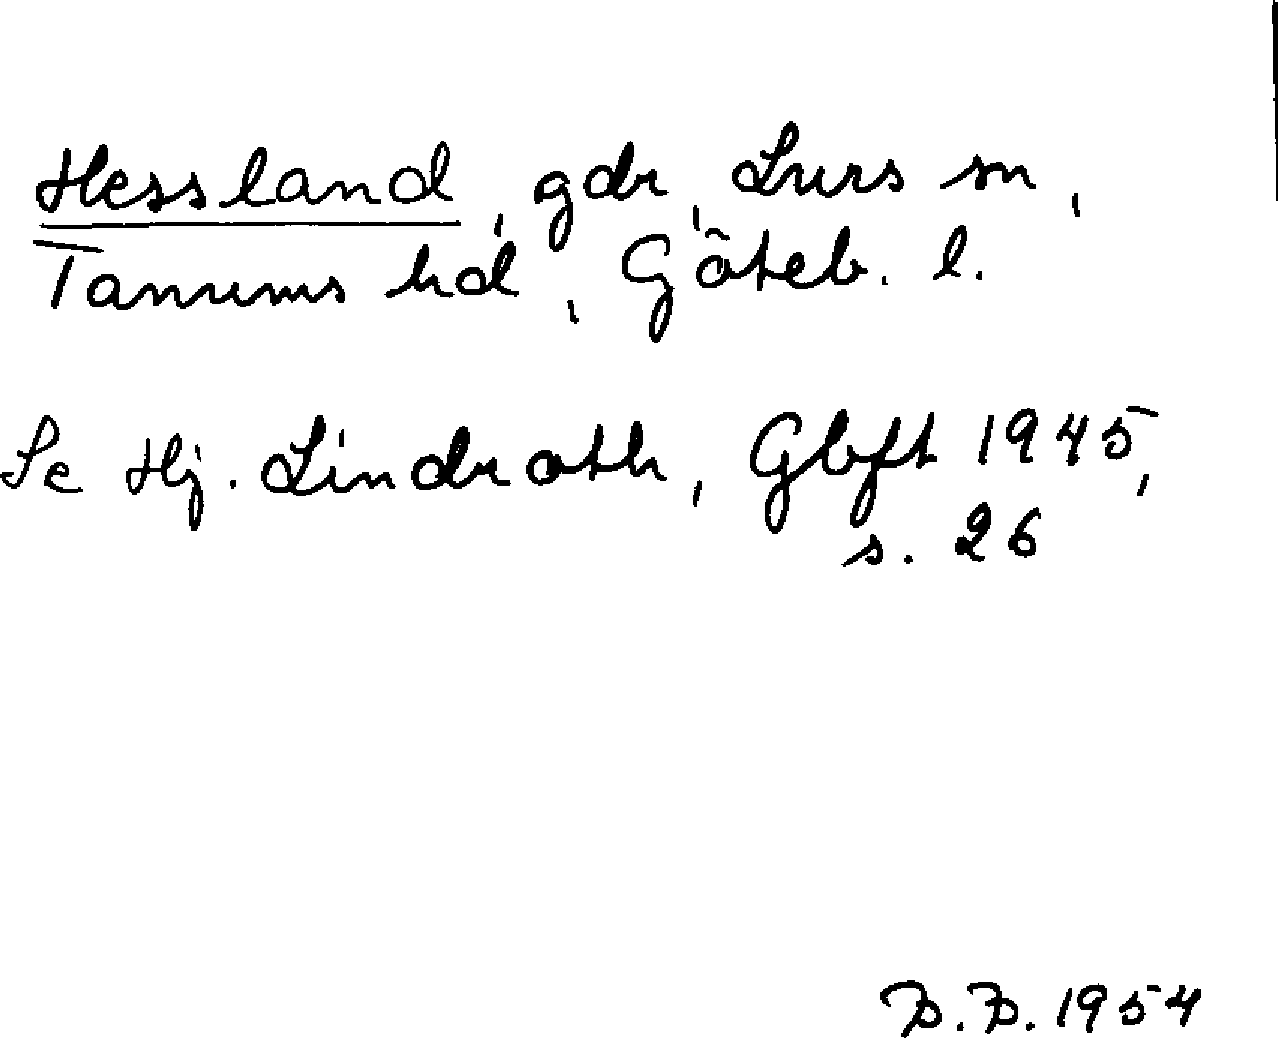 Hessland, gdr, Lurs sn,
Tanums hd, Göteb. l.
Se Hj. Lindroth, Gbft 1945,
s. 26
B.B. 1954